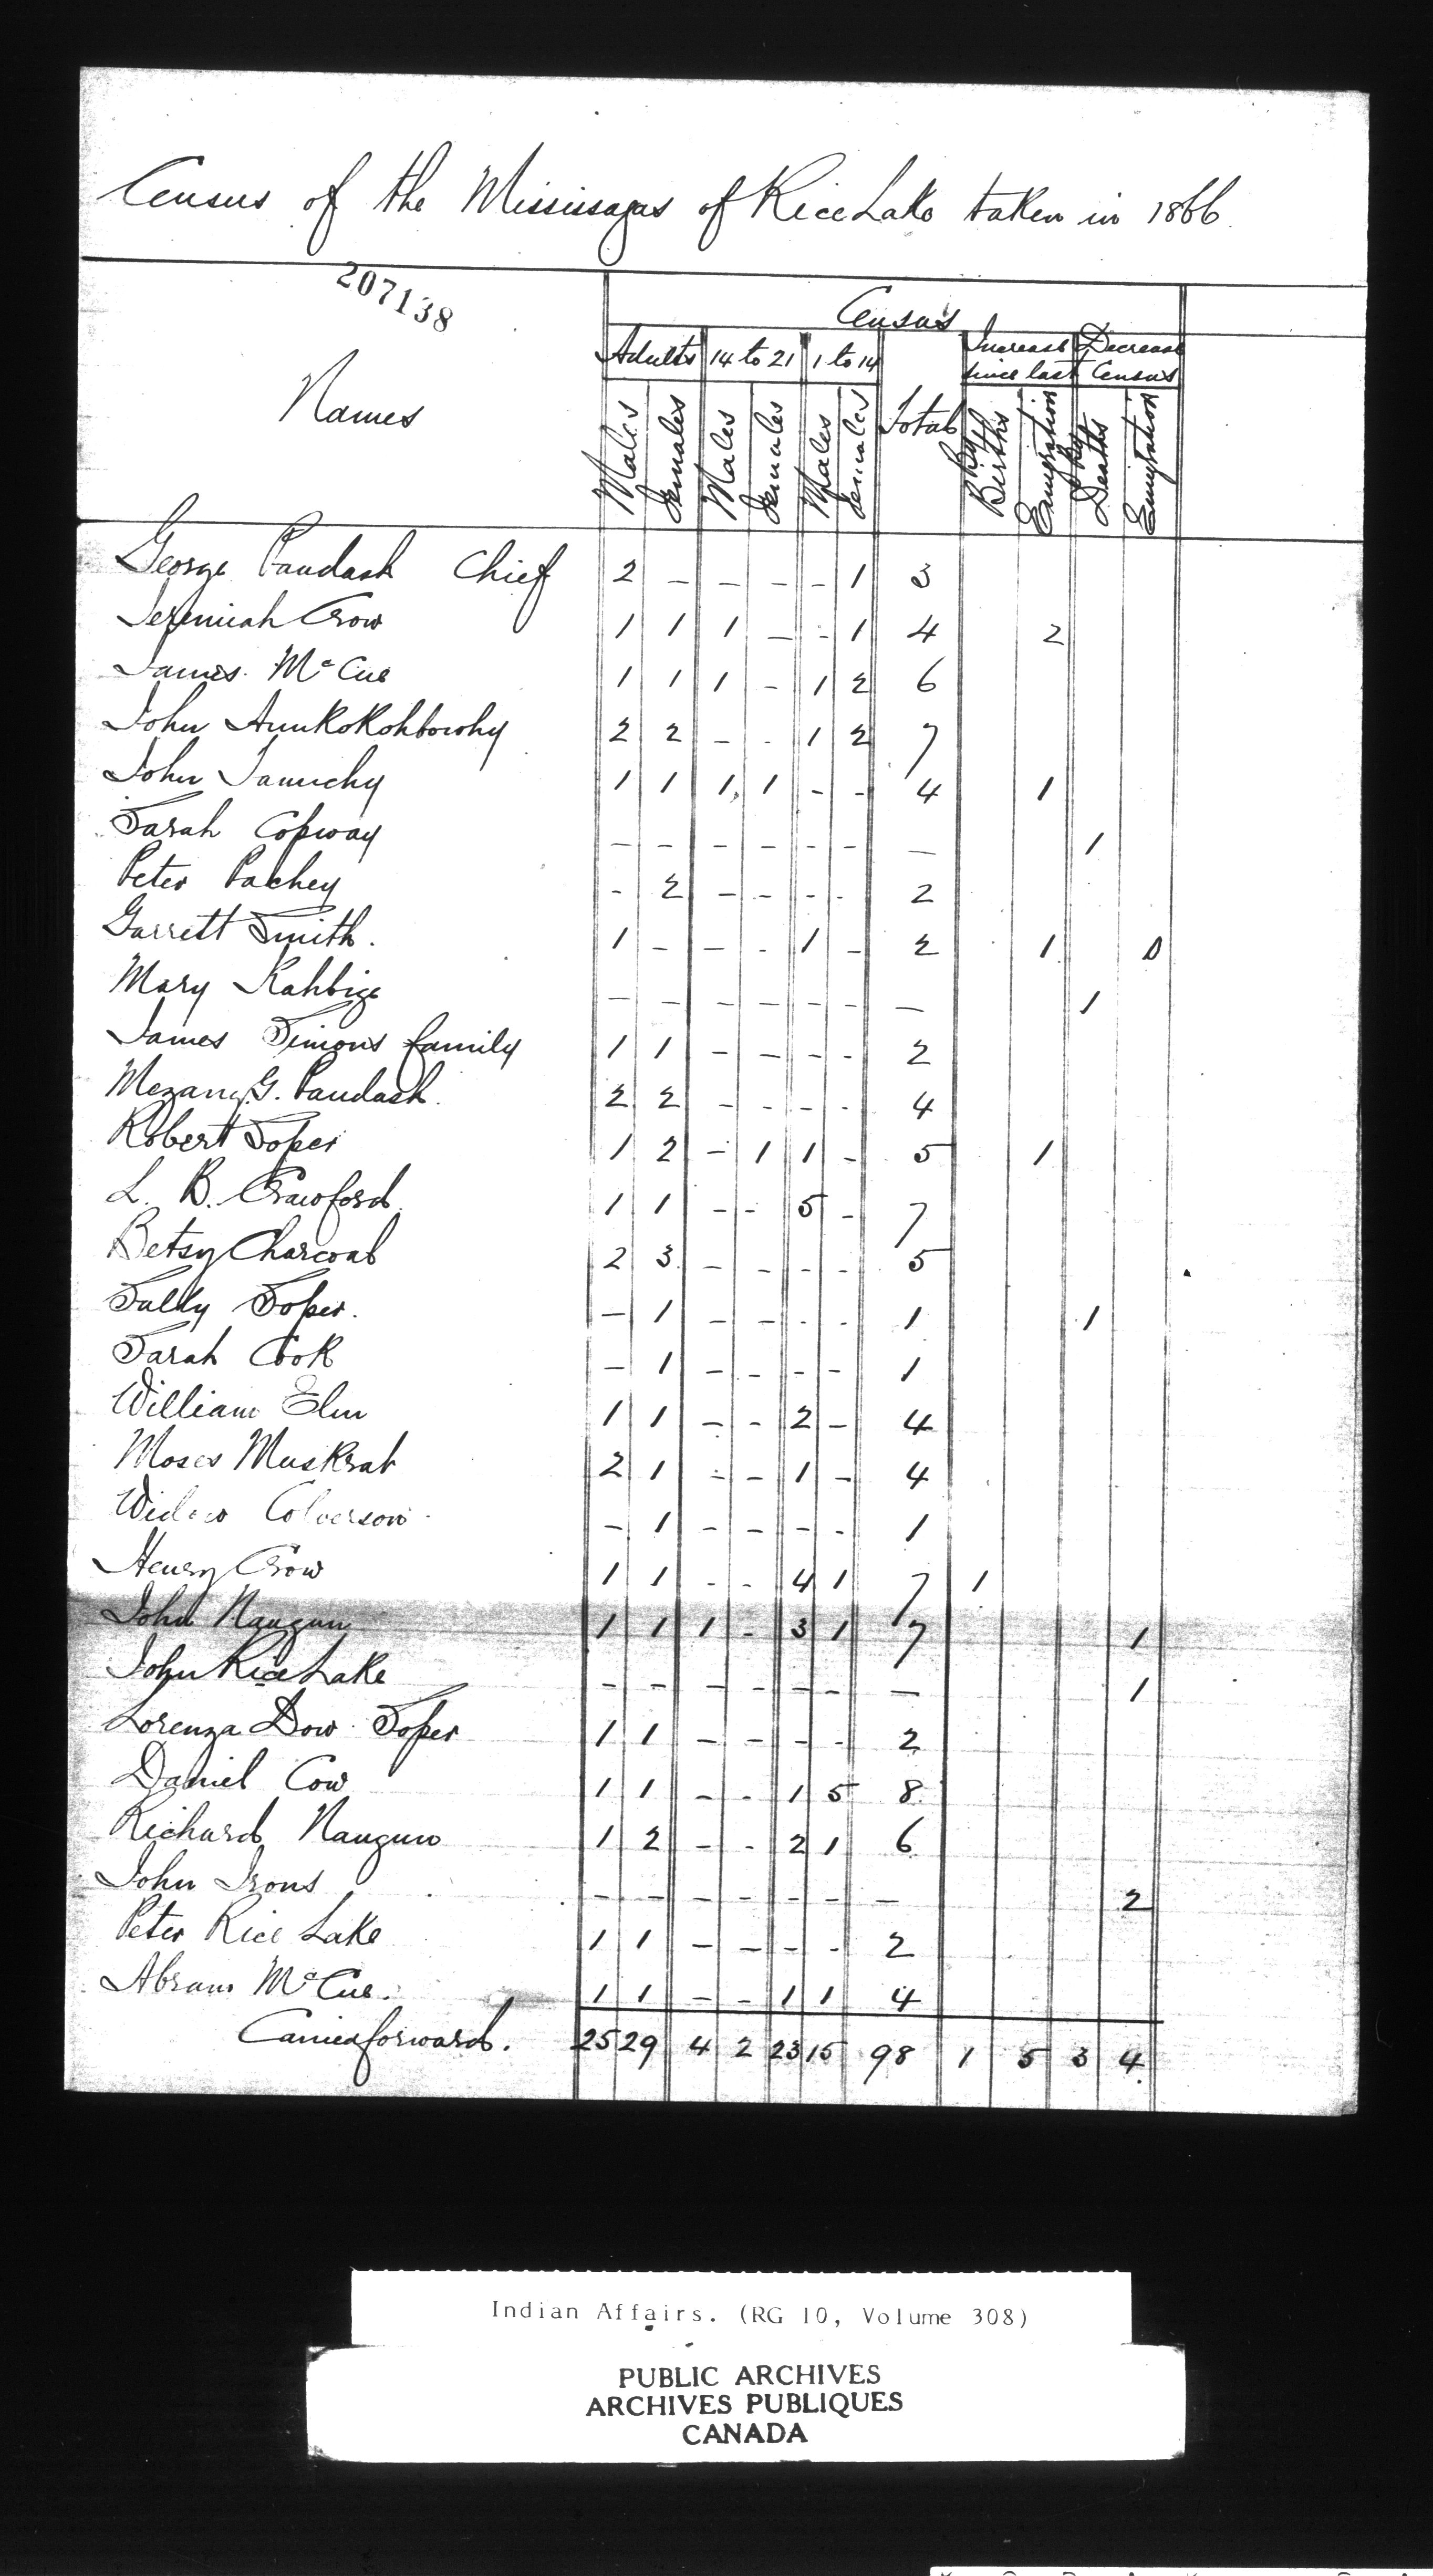 Census of the Missisagas of Rice Lake taken in 1866
207138
Census
Adults 14 to 21 1 to 14 Increase Decrease
since last Census
Names Males Females Males Females Males Females Total By Births Emigration By Deaths Emigration
George Paudash Chief 2 – – – – 1 3
Jeremiah Crow 1 1 1 – – 1 4 2
James McCue 1 1 1 – 1 2 6
John 2 2 – – 1 2 7
John 1 1 1 1 – – 4 1
Sarah Copway – – – – – – – 1
Peter Pachey – 2 – – – – 2
Garrett Smith. 1 – – – 1 – 2 1 0
Mary Kahbige – – – – – – – 1
James Simons family 1 1 – – – – 2
Mezang G. Paudash. 2 2 – – – – 4
Robert Soper 1 2 – 1 1 – 5 1
L. B. Crawford. 1 1 – – 5 – 7
Betsy Charcoal 2 3 – – – – 5
Sally Soper. – 1 – – – – 1 1
Sarah Cook – 1 – – – – 1
William Elm 1 1 – – 2 – 4
Moses Muskrat 2 1 – – 1 – 4
Widow Colverson – 1 – – – – 1
Henry Crow 1 1 – – 4 1 7 1
John Naugun 1 1 1 – 3 1 7 1
John Rice Lake – – – – – – – 1
Lorenza Dow Soper 1 1 – – – – 2
Daniel Cow 1 1 – – 1 5 8
Richard Naugun 1 2 – – 2 1 6
John Irons – – – – – – – 2
Peter Rice Lake 1 1 – – – – 2
Abram McCue. 1 1 – – 1 1 4
Carried forward. 25 29 4 2 23 15 98 1 5 3 4
Indian Affairs. (RG 10, Volume 308)
PUBLIC ARCHIVES
ARCHIVES PUBLIQUES
CANADA